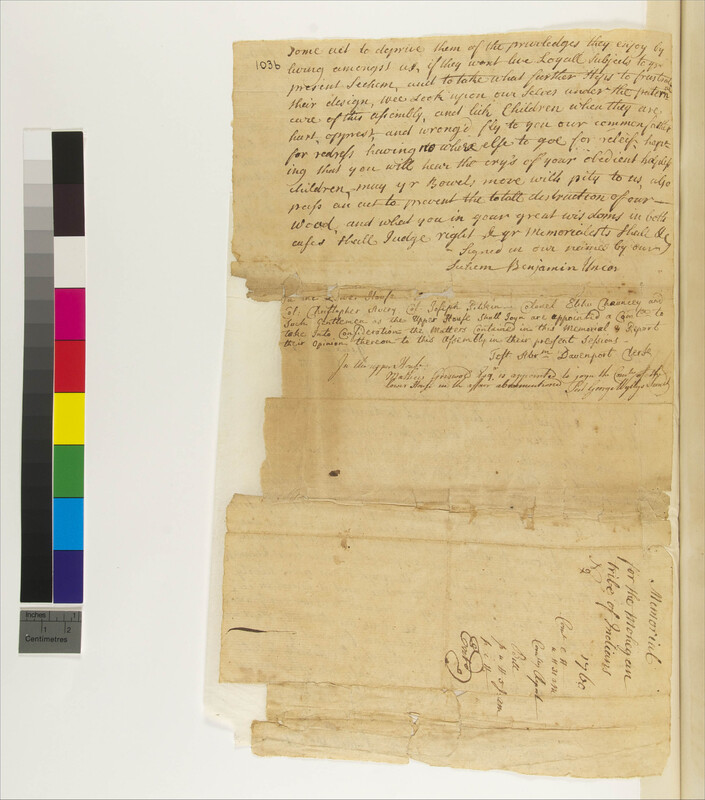 103b
Some act to deprive them of the priviledges they enjoy by
living amongst us, if they wont live Loyall Subjects to yr
present Sachem, and to take what further steps to frustrate
their design, wee Look upon our Selves under the
care of this assembly, and lick Children when they are
hurt, oppress, and wrong'd fly to you our common father
for redress having no where else to goe for releif, hope
ing that you will hear the cry's of your obedient
Children, may yr Bowels move with pity to us, also
pass an act to prevent the totall destruction of our
Wood, and what you in your great wisdoms in both
cases Shall Judge right & yr Memorealests Shall &c
Signed in our name by our
Sachem Benjamin Uncas
In the Lower House
Col. Christopher Avery Col Joseph Pitkin Colonel Elihu Chauncey and
Such Gentlemen as the Upper House Shall Joyn are appointed a Comtee to
take Into Consideration the Matters Contained in this Memorial & Report
their Opinion thereon to this Assembly in their present Sessions
Test Abrm Davenport Clerk
In the upper House
Mathew Griswold Esqr. is appointed to joyn the Comtee of the
lower House in the affair abovementioned George Wyllys Secrety
Memorial
for the Mohegan
tribe of Indians
1760
Inches
1
1
2
Centimetres